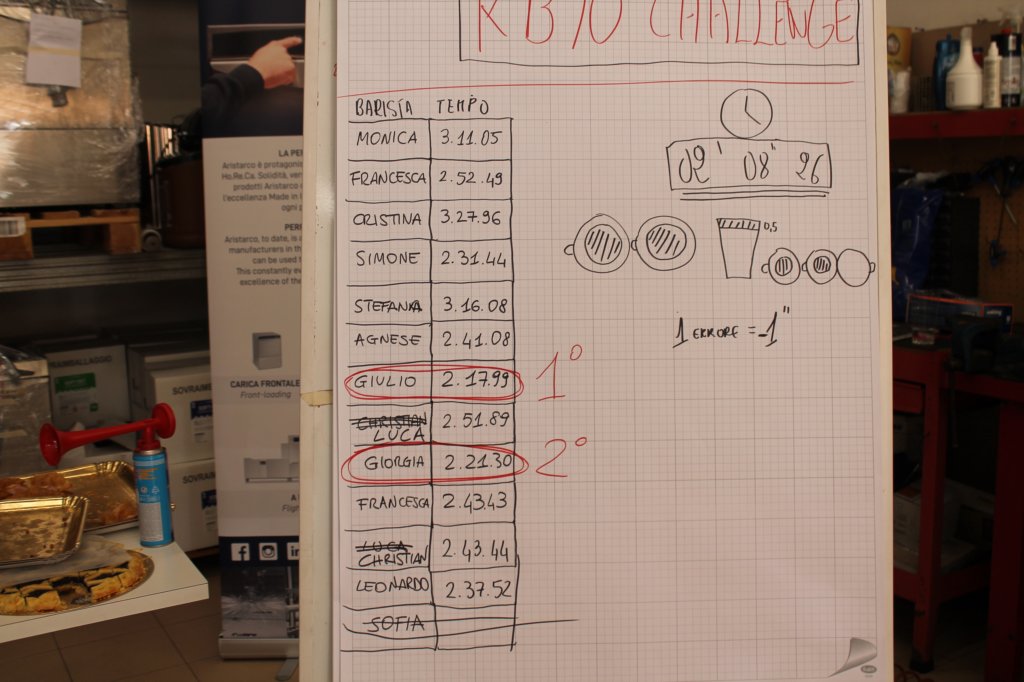 RB70 CHALLENGE
BARISTA TEMPO
MONICA 3.11.05
FRANCESCA 2.52.49
CRISTINA 3.27.96
SIMONE 2.31.44
STEFANIA 3.16.08
AGNESE 2.41.08
GIULIO 2.17.99 1°
CHRISTIAN
LUCA 2.51.89
GIORGIA 2.21.30 2°
FRANCESCA 2.43.43
LUCA
CHRISTIAN 2.43.44
LEONARDO 2.37.52
SOFIA
02' 08" 26
0,5
1 ERRORE = -1"
LA PE
Aristarco è protagonis
Ho.Re.Ca. Solidità, ver
prodotti Aristarco
l'eccellenza Made in I
ogni
PERF
Aristarco, to date, is
manufacturers in th
can be used
This constantly ev
excellence of the
CARICA FRONTALE
Front-loading
A
Fligh
f
in
RAMBALLAGGIO
SOVRAIM
SOVRAIM